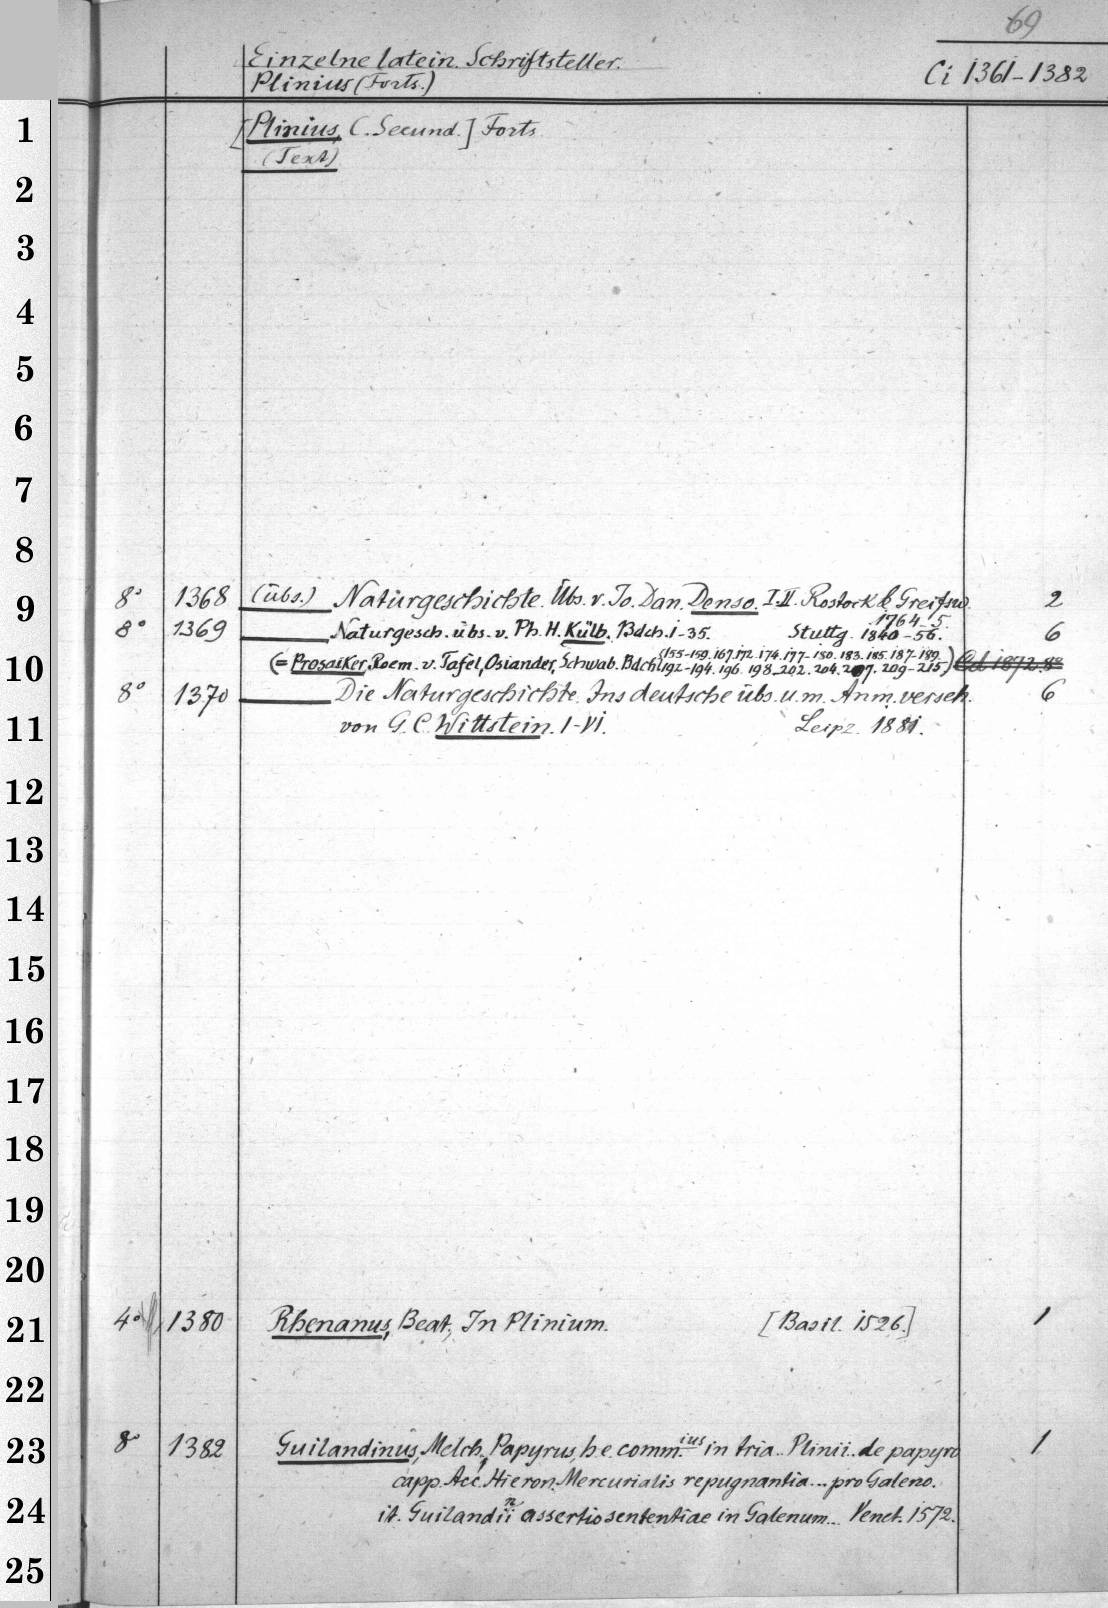 69
Einzelne latein. Schriftsteller.
Plinius (Forts.)
Ci 1361-1382
[Plinius, C. Secund.] Forts.
(Text)
8° 1368 (übs.) Naturgeschichte. Übs. v. Jo. Dan. Denso. I.II. Rostock & Greifsw. 2
1764-5.
8° 1369 Naturgesch. übs. v. Ph. H. Külb. Bdch. 1-35. Stuttg. 1840-56. 6
155-159. 167. 172. 174. 177-180. 183. 185. 187-189.
(= Prosaiker, Roem. v. Tafel, Osiander, Schwab. Bdch. 192-194. 196. 198. 202. 204. 207. 209-215) Cd 1872. 8°
8° 1370 Die Naturgeschichte. Ins deutsche übs. u. m. Anm. verseh. 6
von G. C. Wittstein. I-VI. Leipz. 1881.
4° 1380 Rhenanus, Beat., In Plinium. [Basil. 1526.] 1
8° 1382 Guilandinus, Melch., Papyrus, h. e. comm.ius in tria.. Plinii.. de papyro 1
capp. Acc. Hieron. Mercurialis repugnantia... pro Galeno.
it. Guilandini assertio sententiae in Galenum... Venet. 1572.
1
2
3
4
5
6
7
8
9
10
11
12
13
14
15
16
17
18
19
20
21
22
23
24
25